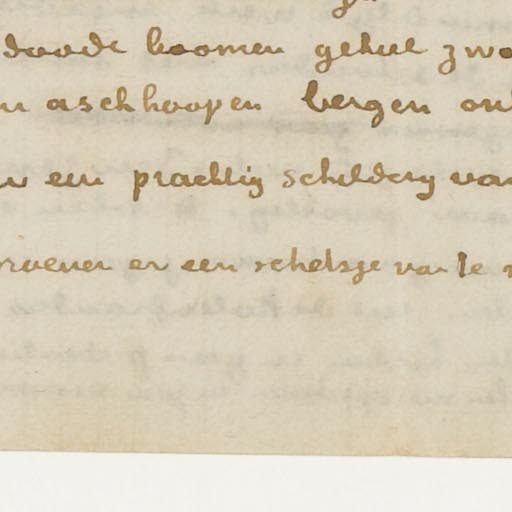 doode boomen geheel zwa
aschhoopen bergen
een prachtig schildery van
er een schetsje van te